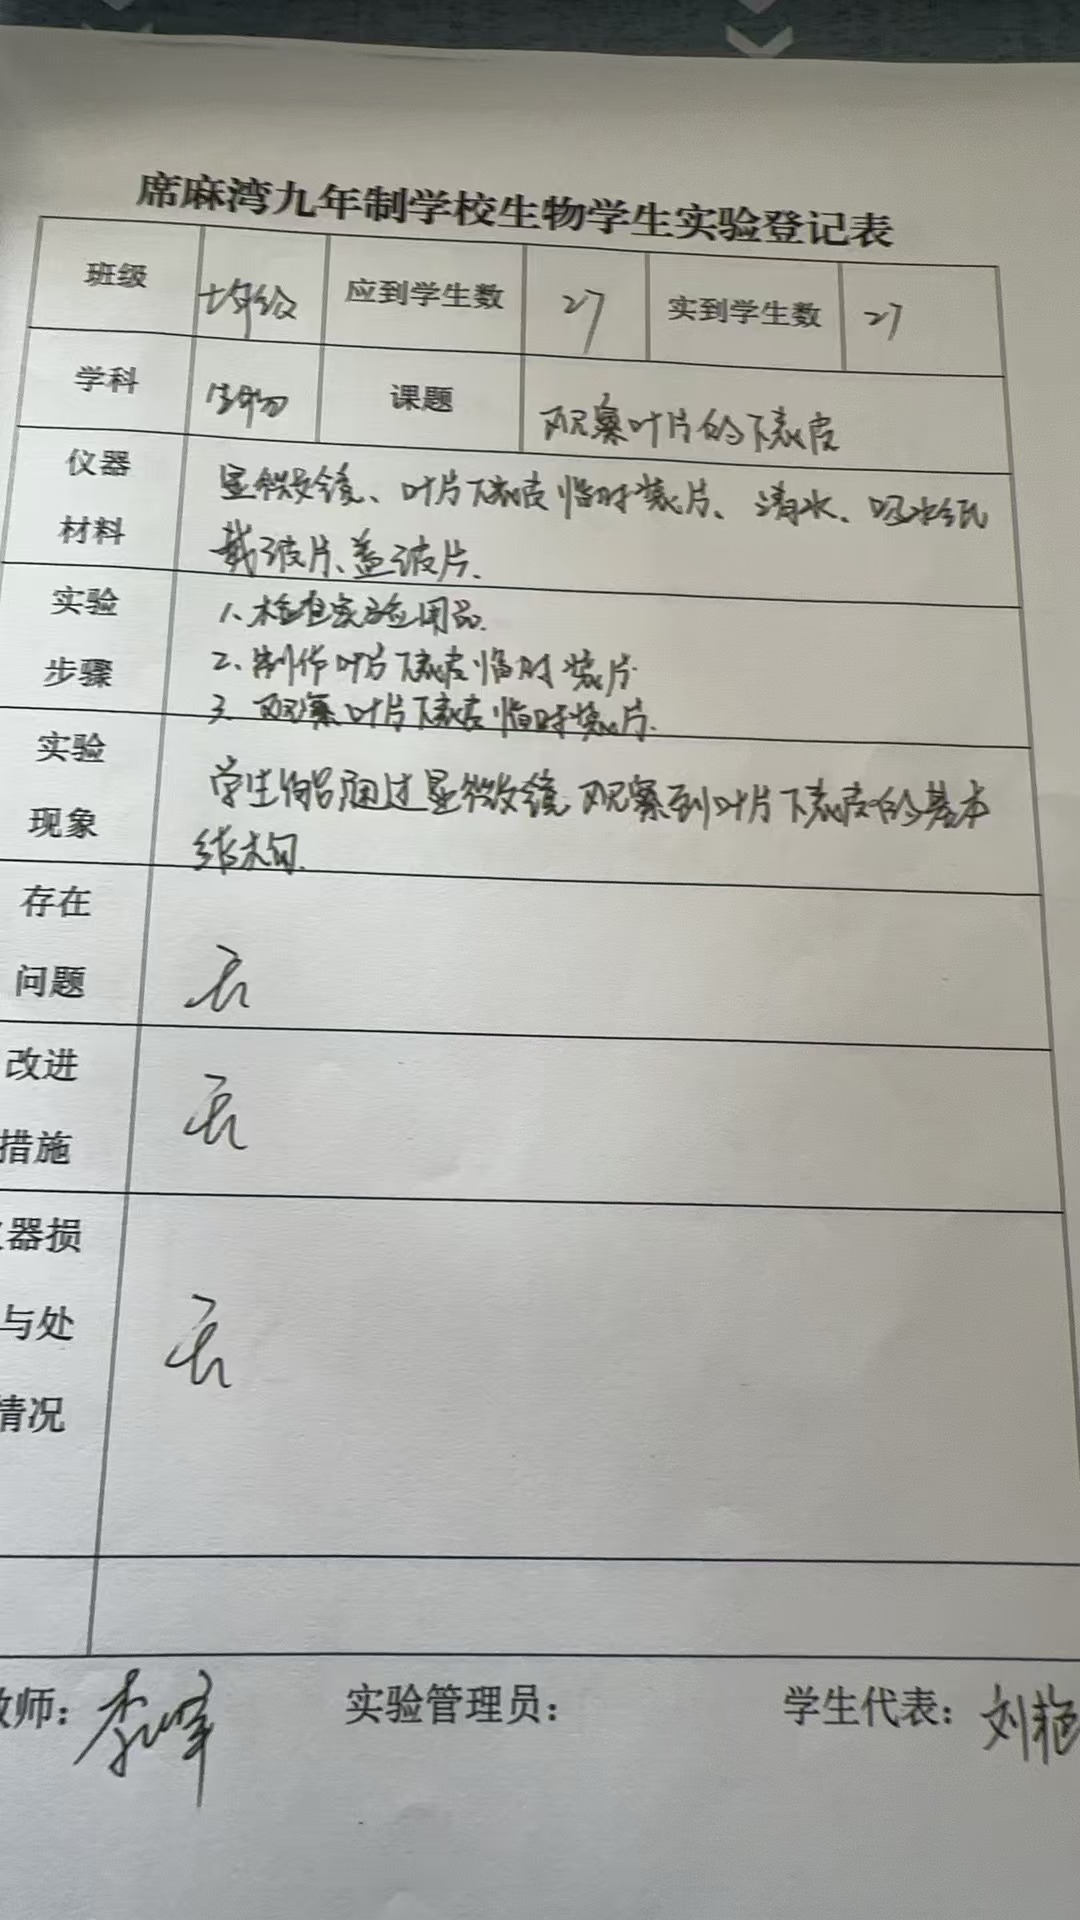 席麻湾九年制学校生物学生实验登记表
班级 七年级 应到学生数 27 实到学生数 27
学科 生物 课题 观察叶片的下表皮
仪器 显微镜、叶片下表皮临时装片、清水、吸水纸
材料 载玻片、盖玻片.
实验 1、检查实验用品.
步骤 2、制作叶片下表皮临时装片
3、观察叶片下表皮临时装片.
实验 学生们通过显微镜观察到叶片下表皮的基本
现象 结构.
存在
问题 无
改进 无
措施
器损
与处 无
情况
教师: 李峰 实验管理员: 学生代表: 刘艳